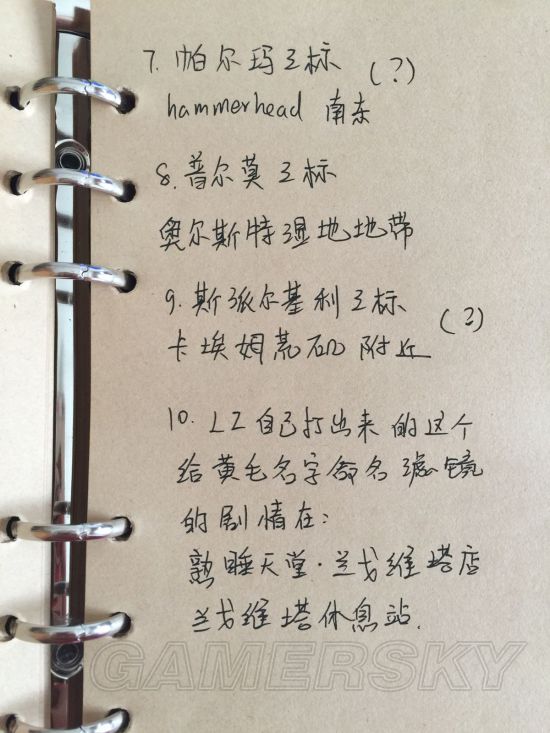 7. 帕尔玛立标 (?)
hammerhead 南东
8. 普尔莫立标
奥尔斯特湿地地带
9. 斯派尔基利立标 (?)
卡埃姆荒矶附近
10. LZ自己打出来的这个
给黄毛名字命名滤镜
的剧情在:
熟睡天堂·兰戈维塔店
兰戈维塔休息站.
GAMERSKY